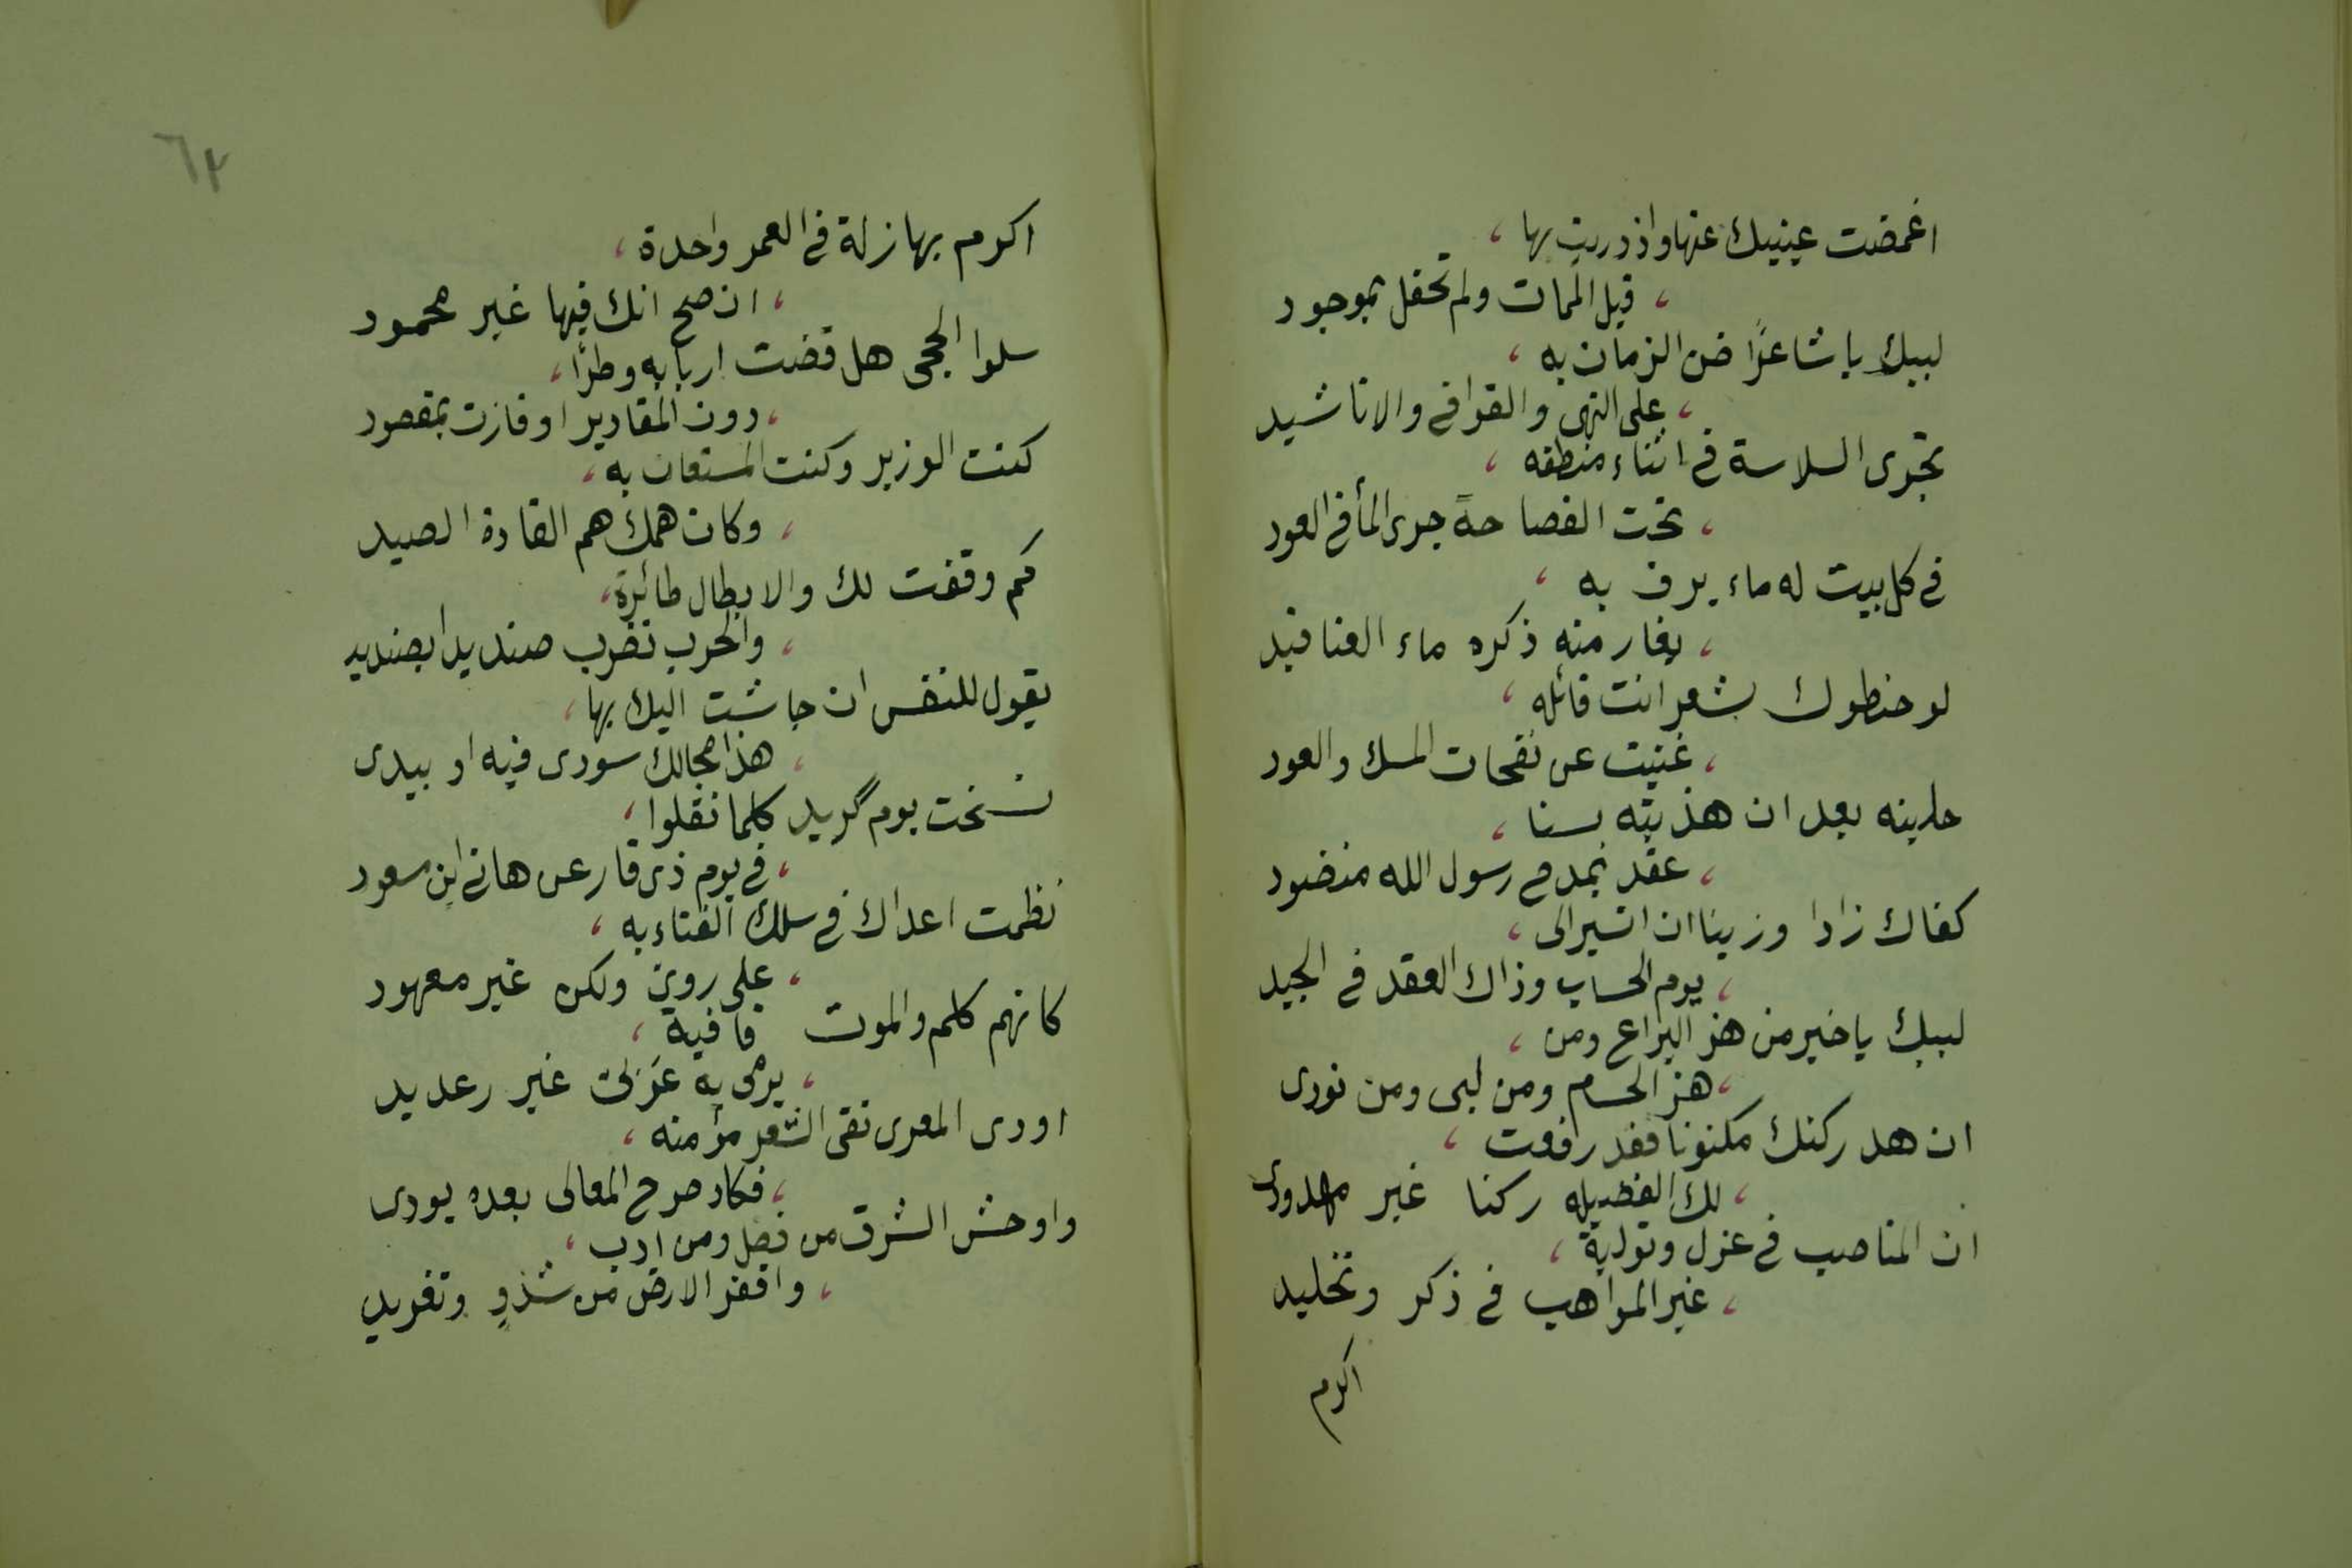 اغمضت عينيك عنها واذدريت بها ،
، قبل الممات ولم تحفل بموجود
لبيك يا شاعرًا ضن الزمان به ،
، على النهى والقوافى والاناشيد
تجرى السلاسة فى اثناء منطقه ،
، تحت الفصاحة جرى المأ فى العود
فى كل بيت له ماء يرف به ،
، يغار منه ذكره ماء العناقيد
لو حنطوك بشعر انت قائله ،
، غنيت عن نفحات المسك والعود
حلينه بعد ان هذبته بسنا ،
، عقد بمدح رسول الله منضود
كفاك زادا وزينا ان اتسير الى ،
، يوم الحساب وذاك العقد فى الجيد
لبيك يا خير من هز اليراع ومن ،
، هز الحسام ومن لبى ومن نودى
ان هد ركنك مكنونا فقد رفعت ،
، لك الفضيله ركنا غير مهدود
ان المناصب فى عزل وتولية ،
، غير المواهب فى ذكر وتخليد
اكرم
٦٢
اكرم بها زلة فى العمر واحدة ،
، ان صح انك فيها غير محمود
سلوا الحجى هل قضت اربابه وطرًا ،
، دون المقادير او فازت بمقصود
كنت الوزير وكنت المستعان به ،
، وكان همك هم القادة الصيد
كم وقفت لك والابطال طائرة ،
، والحرب تضرب صنديدا بصنديد
يقول للنفس ان جاشت اليك بها ،
، هذا مجالك سودى فيه او بيدى
نسخت يوم گريد كلما نقلوا ،
، فى يوم ذى قار عن هانى ابن مسعود
نظمت اعداك فى سلك الفناء به ،
، على روىّ ولكن غير معهود
كانهم كلم والموت قافية ،
، يرمى به عربى غير رعديد
اودى المعرى تقى الشعر مؤمنه ،
، فكاد صرح المعالى بعده يودى
واوحش الشرق من فضل ومن ادب ،
، واقفر الارض من شذو وتغريد